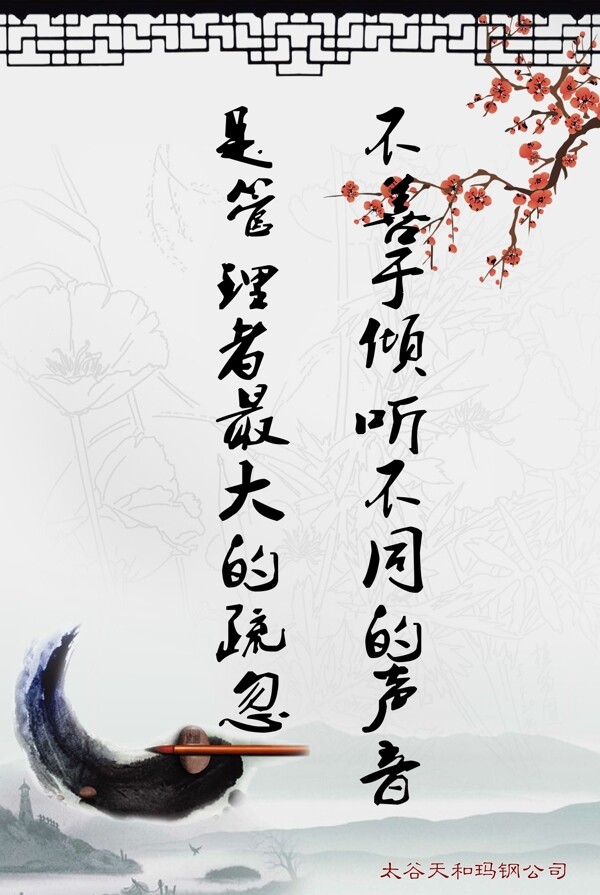 不善于倾听不同的声音
是管理者最大的疏忽
太谷天和玛钢公司